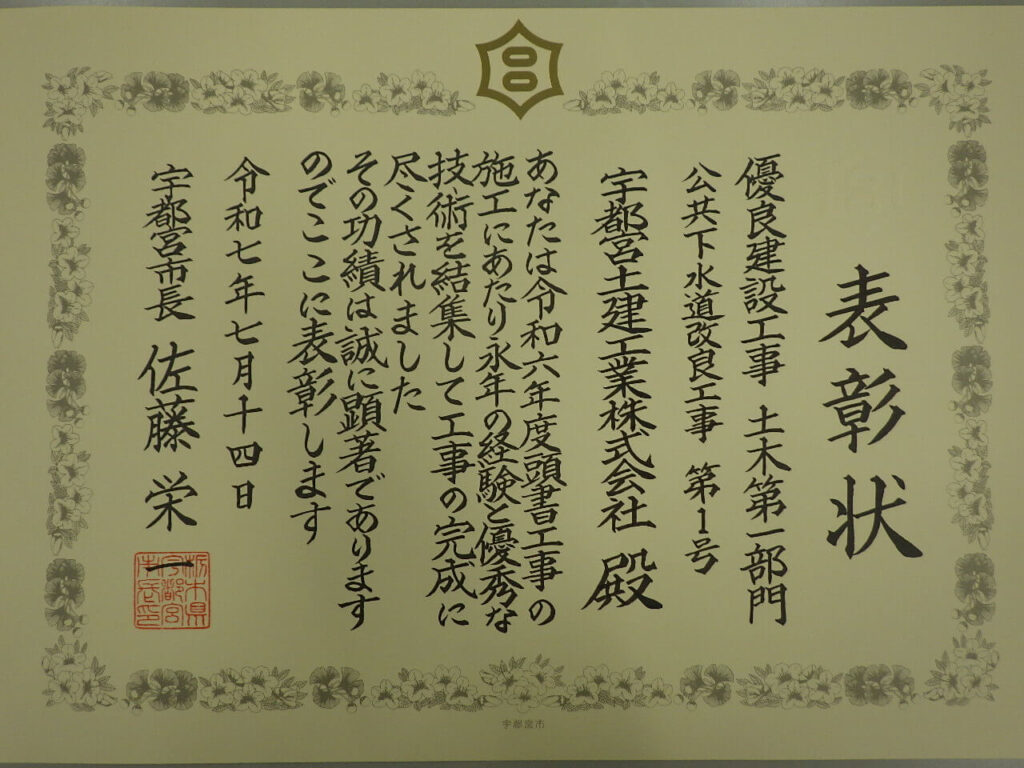 表彰状
優良建設工事 土木第一部門
公共下水道改良工事 第1号
宇都宮土建工業株式会社 殿
あなたは令和六年度頭書工事の
施工にあたり永年の経験と優秀な
技術を結集して工事の完成に
尽くされました
その功績は誠に顕著であります
のでここに表彰します
令和七年七月十四日
宇都宮市長 佐藤栄一
栃木県
宇都宮
市長印
宇都宮市